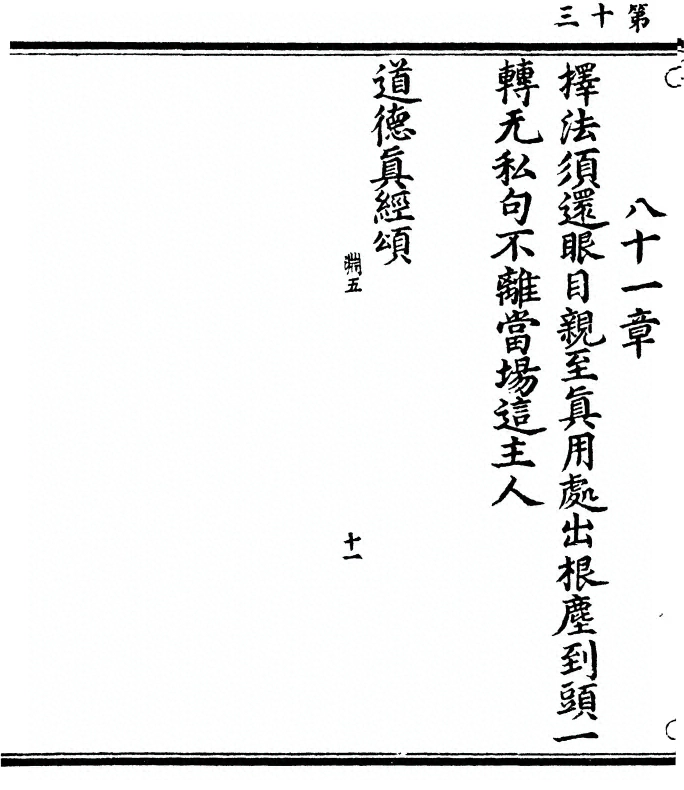 第十三
八十一章
擇法須還眼目親至眞用處出根塵到頭一
轉无私句不離當場這主人
道德眞經頌
淵五
十一